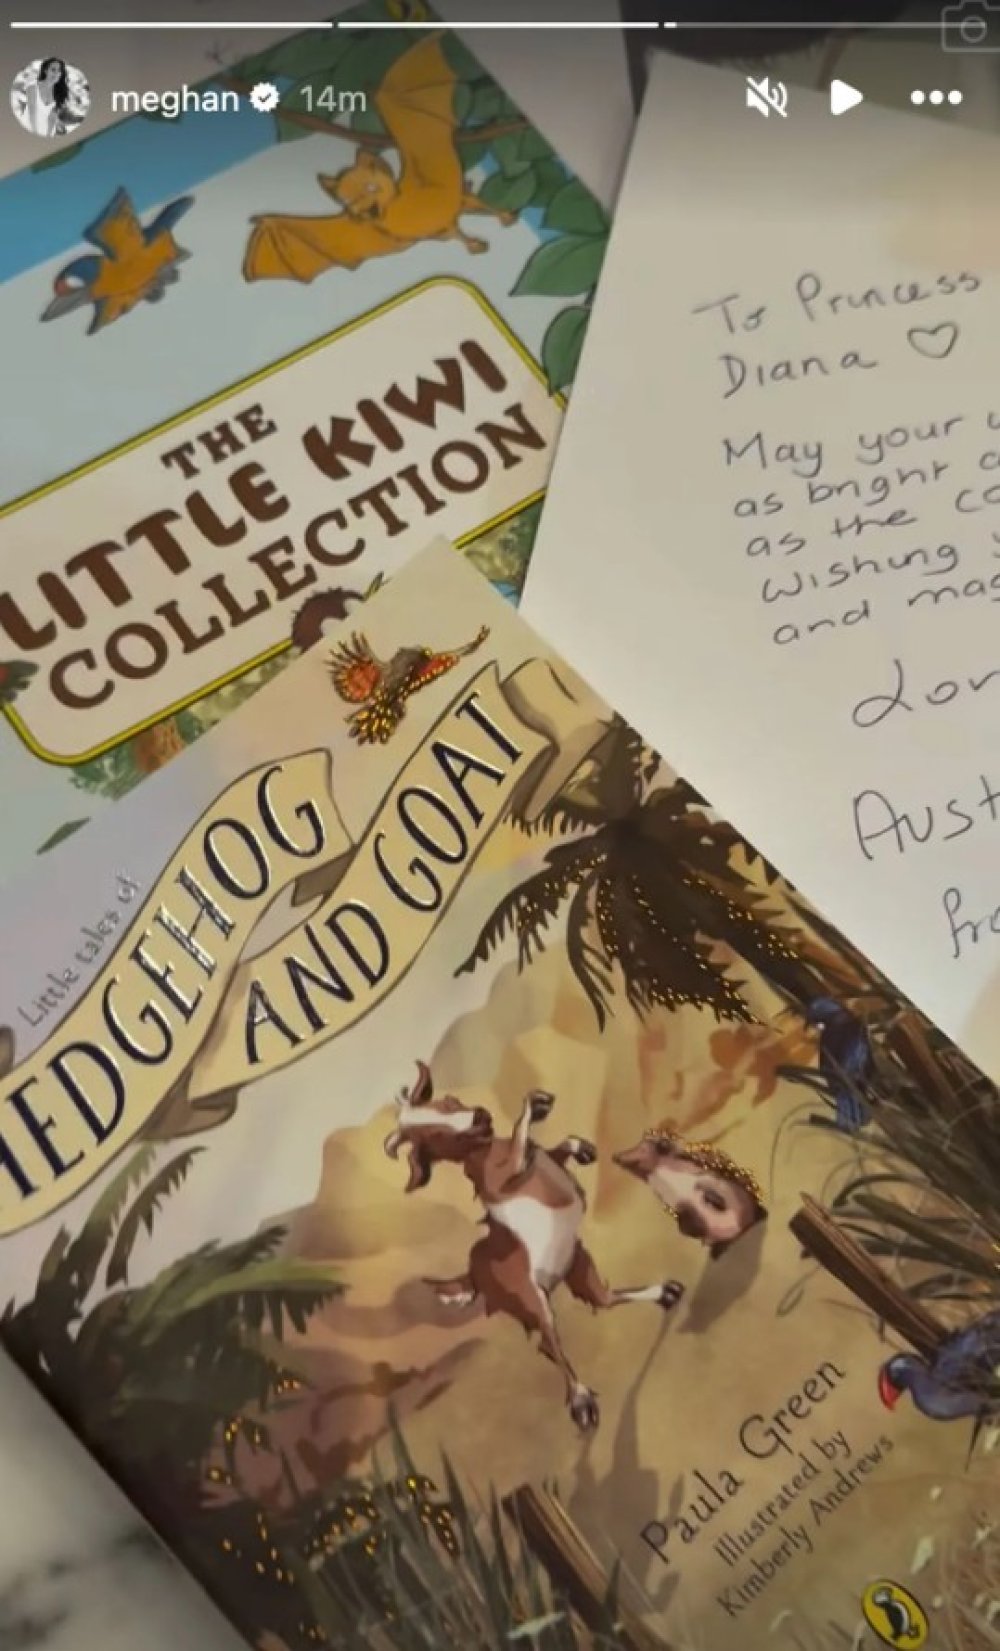 meghan 14m
THE
LITTLE KIWI
COLLECTION
Little tales of
HEDGEHOG
AND GOAT
Paula Green
Illustrated by
Kimberly Andrews
To Princess
Diana ♡
May your
as bright
as the
Wishing
and